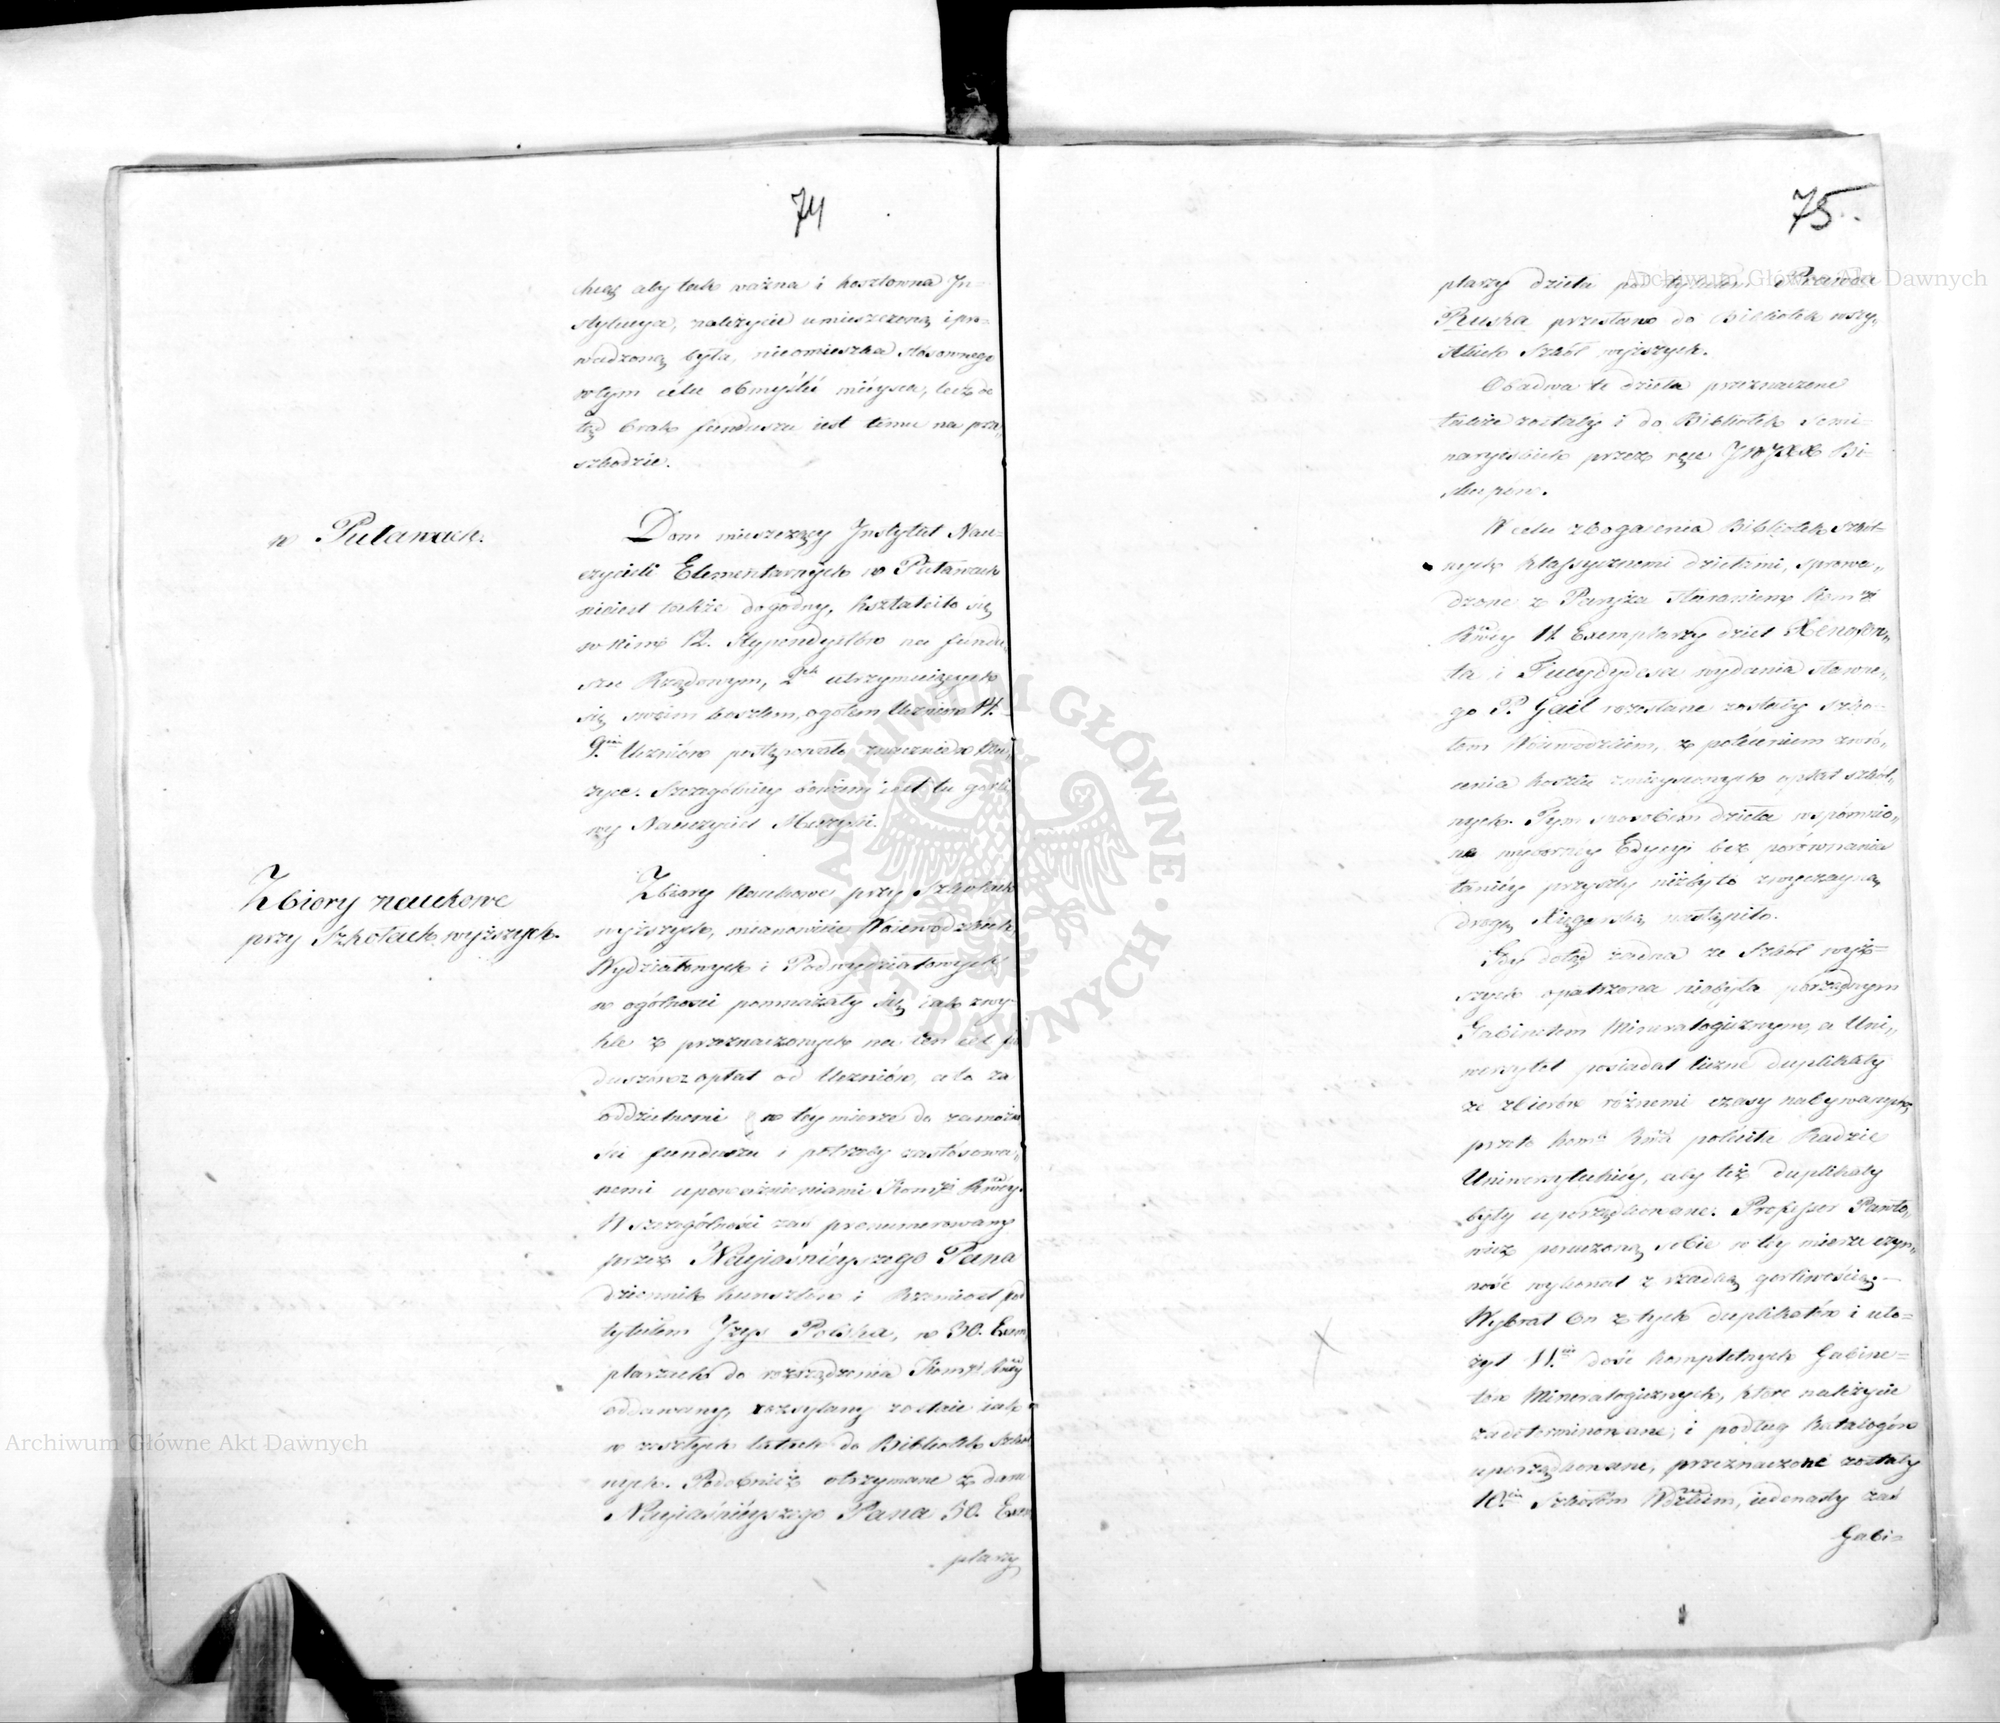 74
chcąc aby tak ważna i kosztowna In-
stytucya, należycie umieszczoną i pro-
wadzoną była, nieomieszka stósownego
w tym celu obmyślić mieysca, lecz do
tąd brak funduszu iest temu na prze-
szkodzie.
w Puławach.
Dom mieszczący Instytut Nau-
czycieli Elementarnych w Puławach
nieiest także dogodny, kształciło się
w nim 12. Stypendystów na fundu-
szu Rządowym, 2ch utrzymuiących
się swoim kosztem, ogółem Uczniów 14.
9.ciu Uczniów postępowało znacznie w Mu-
zyce. Szczególniey bowiem iest tu gorli-
wy Nauczyciel Muzyki.
Zbiory naukowe
przy Szkołach wyższych.
Zbiory Naukowe przy Szkołach
wyższych, mianowicie Woiewódzkich
Wydziałowych i Podwydziałowych
w ogólności pomnażały się iak zwy-
kle z przeznaczonych na ten cel fu
duszów z opłat od Uczniów, a to za
oddzielnemi w tey mierze do zamożno
ści funduszu i potrzeby zastósowa-
nemi upoważnieniami Kom.yi Rwéy.
W szczególności zaś prenumerowany
przez Nayiaśnieyszego Pana
dziennik kunsztów i Rzemiosł pod
tytułem Izys Polska, w 30. Exem
plarzach do rozrządzenia Kom.yi Rwéy
oddawany, rozsyłany zostaie iak
w zeszłych latach do Bibliotek Szkol
nych. Podobnież otrzymane z daru
Nayiaśnieyszego Pana 30. Exem
plarzy
75.
plarzy dzieła pod tytułem Prawda
Ruska przesłano do Bibliotek wszy-
stkich Szkół wyższych.
Obadwa te dzieła przeznaczone
także zostały i do Bibliotek Semi-
naryiskich przez ręce JWJXX Bi-
skupów.
W celu zbogacenia Bibliotek Szkol-
nych klassycznemi dziełami, sprowa-
dzone z Paryża staraniem Kom.yi
Rwéy 11. Exemplarzy dzieł Xenofon-
ta i Tucydydesa wydania sławne-
go P. Gail rozesłane zostały Szko-
łom Woiewódzkim, z poleceniem zwró-
cenia kosztu z mieyscowych opłat szkol-
nych. Tym sposobem dzieła wspomnio-
ne wyborney Edycyi bez porównania
taniey przyszły niżby to zwyczayną
drogą Xięgarską nastąpiło.
Gdy dotąd żadna ze Szkół wyż-
szych opatrzona niebyła porządnym
Gabinetem Mineralogicznym, a Uni-
wersytet posiadał liczne duplikaty
ze zbiorów różnemi czasy nabywanych,
przeto Kom.a Rwa poleciła Radzie
Uniwersyteckiey, aby też duplikaty
były uporządkowane. Professor Pawło-
wicz poruczoną sobie w tey mierze czyn-
ność wykonał z rzadką gorliwością.—
Wybrał on z tych duplikatów i uło-
żył 11.cie dość kompletnych Gabine-
tów Mineralogicznych, które należycie
zadeterminowane, i podług Katalogów
uporządkowane, przeznaczone zostały
10.ciu Szkołom Wdzkim, iedenasty zaś
Gabi-
Archiwum Główne Akt Dawnych
Archiwum Główne Akt Dawnych
ARCHIWUM GŁÓWNE AKT DAWNYCH